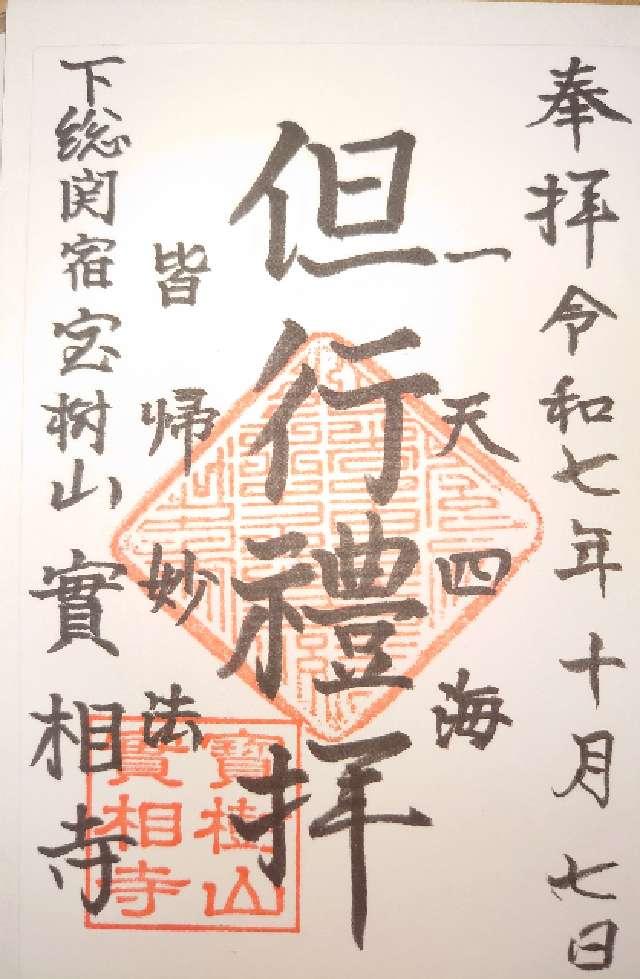 奉拝令和七年十月七日
一天四海
但行禮拝
皆帰妙法
下総関宿宝樹山實相寺
寳樹山
實相寺